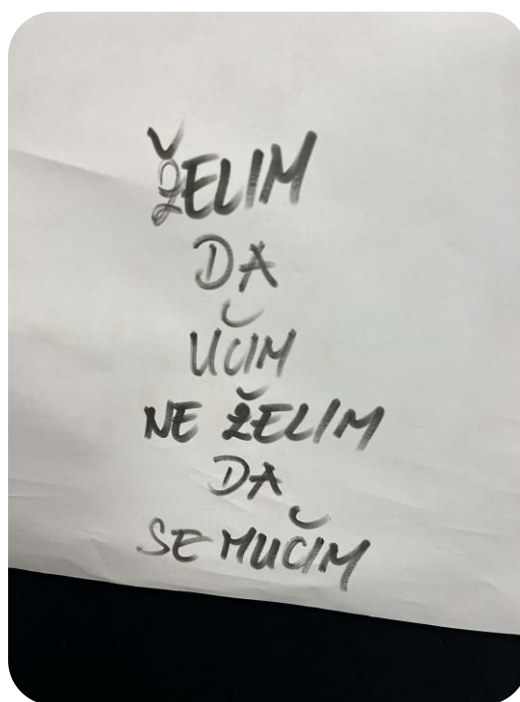 ŽELIM
DA
UČIM
NE ŽELIM
DA
SE MUČIM